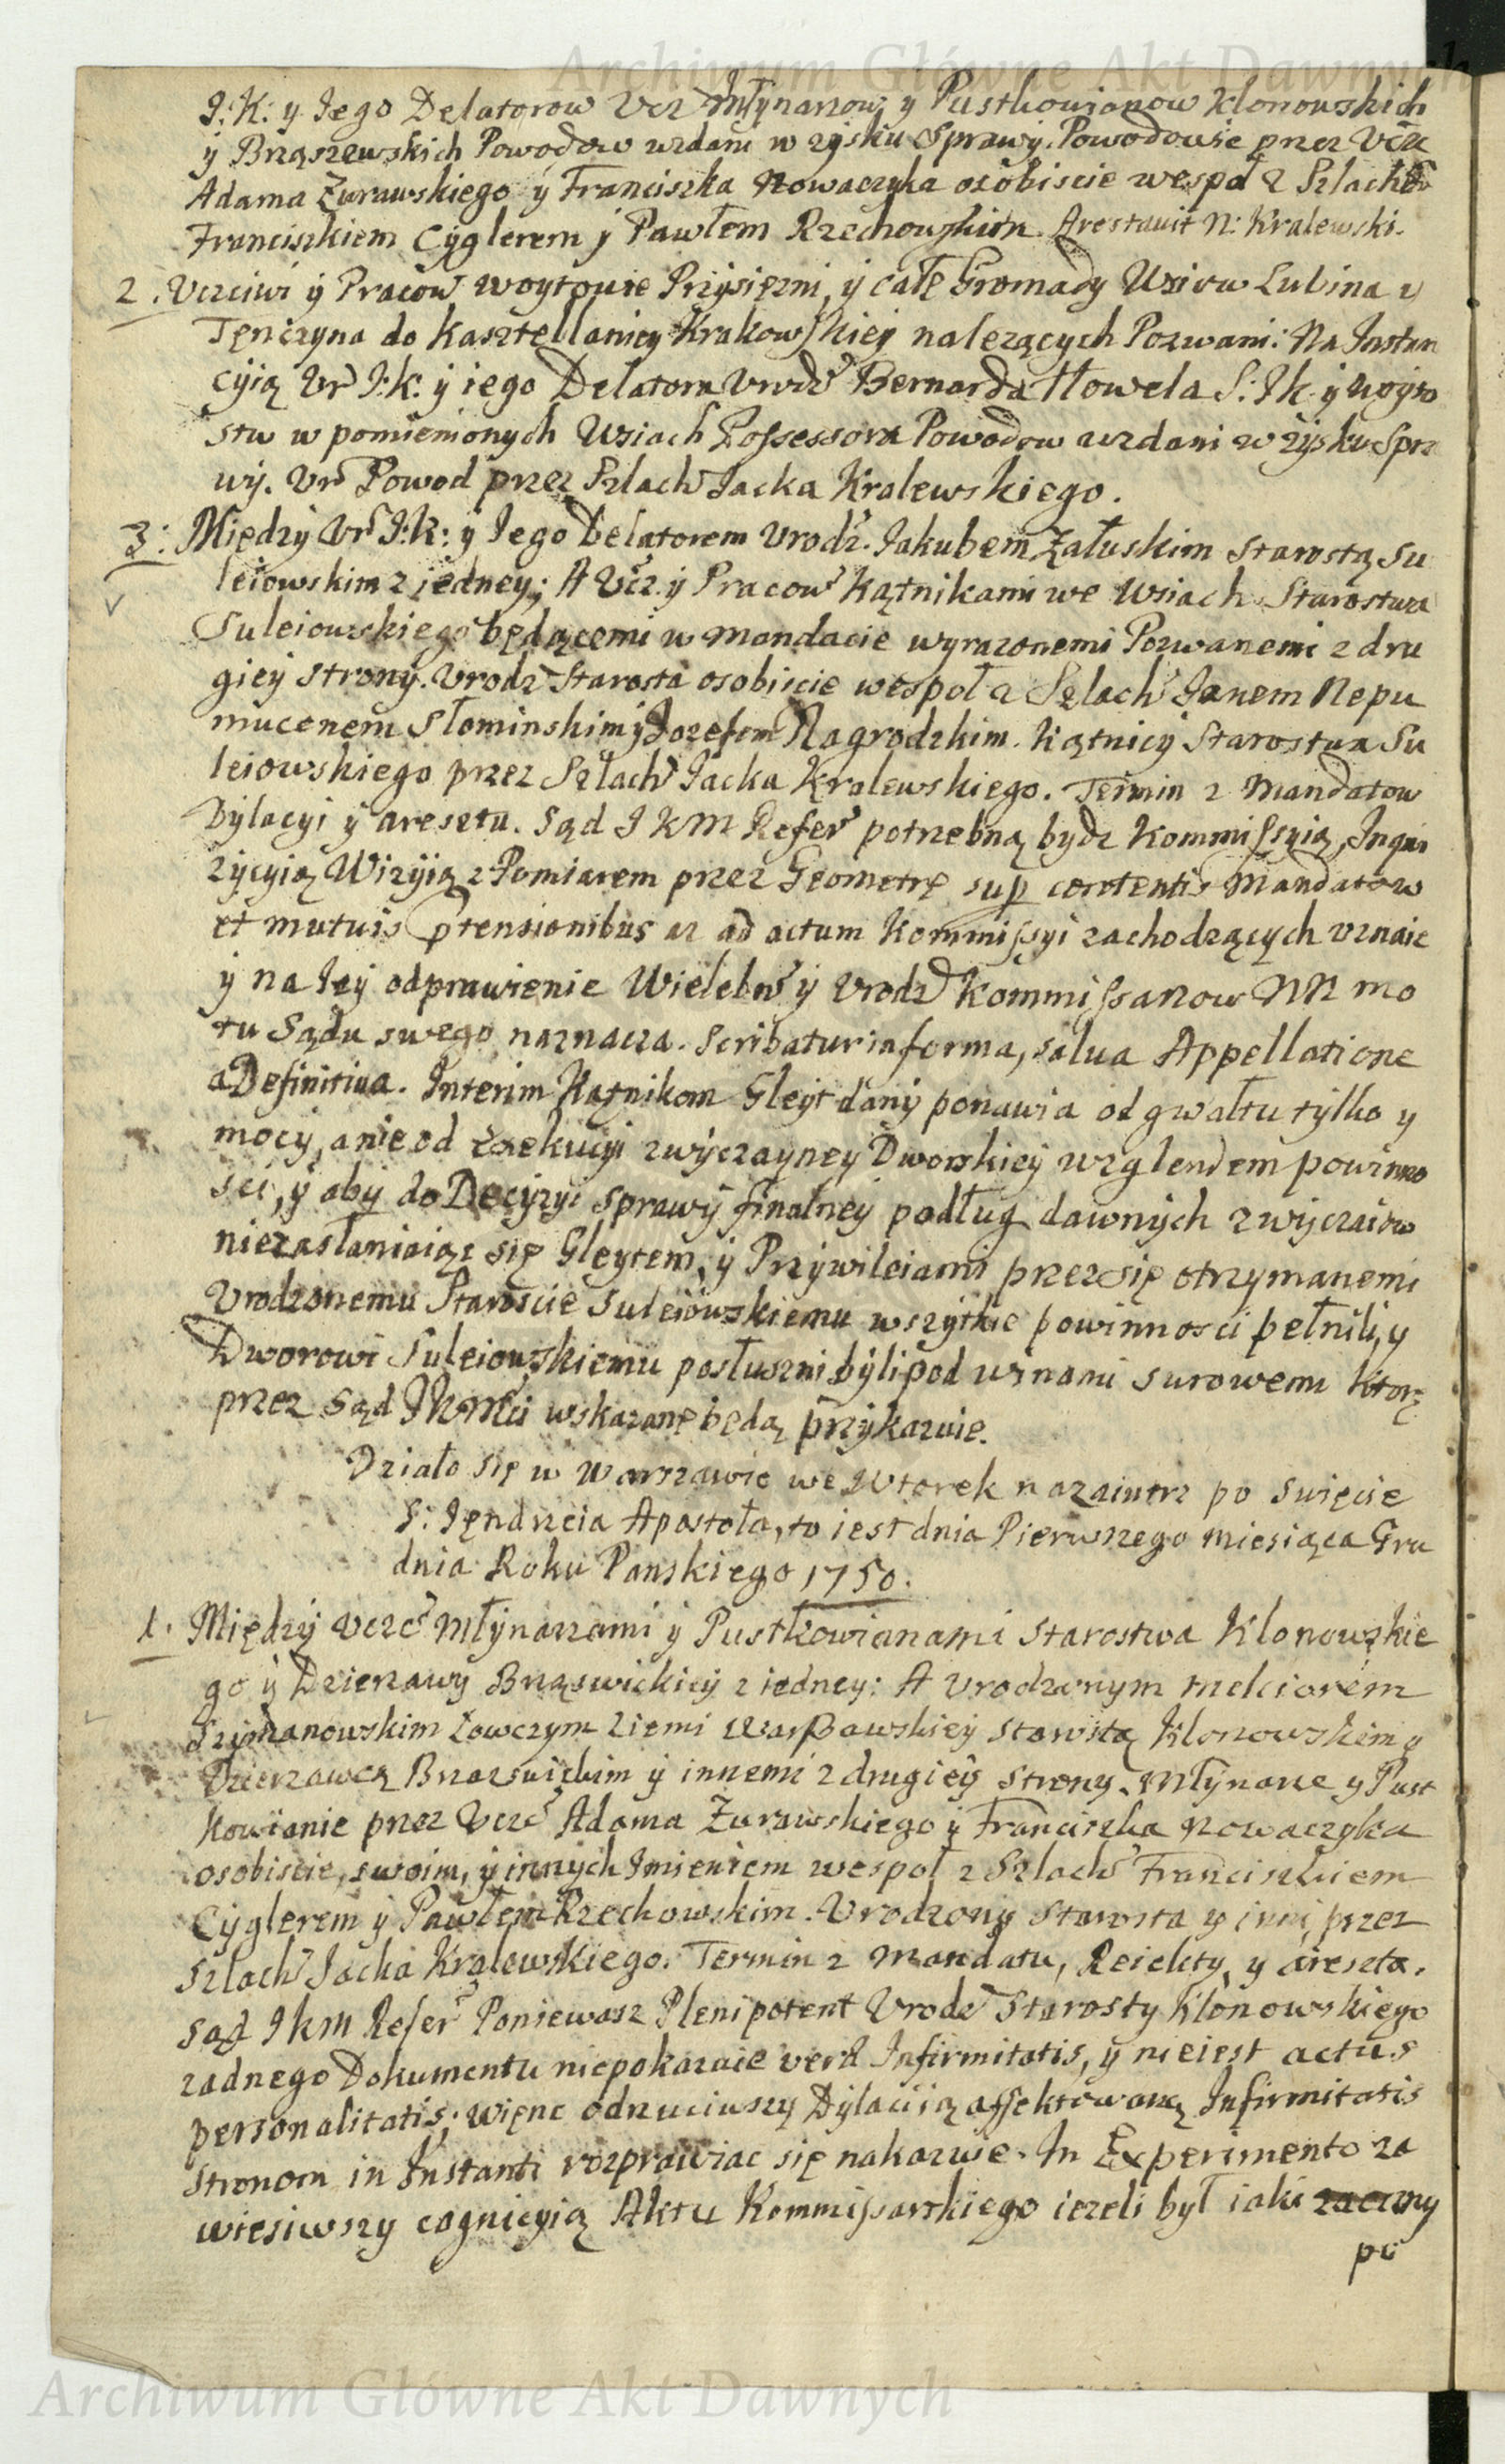 J: K: y Jego Delatorow Vcz Młynarzow y Pustkowianow Klonowskich
y Brąszewskich Powodow wzdani w zysku Sprawy. Powodowie przez Vczc
Adama Zurawskiego y Franciszka Nowaczyka osobiscie wespoł z Szlachć
Franciszkiem Cyglerem y Pawłem Rzechowskim. Arestavit N: Kralewski.
2. Vczciwi y Pracow Woytowie Przysięzni, y całe Gromady Wsiow Lubina y
Tenczyna do Kasztellaniey Krakowskiey nalezących Pozwani: Na Instan
cyią Vr J: K: y iego Delatora Vrodz Bernarda Howela S: J K y Woyto
stw w pomienionych Wsiach Possessora Powodow wzdani w zysku Spra
wy. Vr Powod przez Szlach Jacka Kralewskiego.
3: Między Vr J: K: y Jego Delatorem Vrodz. Jakubem Załuskim Starostą Su
leiowskim z iedney; A Vcz. y Pracow Kątnikami we Wsiach Starostwa
Suleiowskiego będącemi w Mandacie wyrazonemi Pozwanemi z dru
giey strony. Vrodz Starosta osobiscie wespoł z Szlach Janem Nepu
mucenem Słominskim y Jozefem Nagrodzkim. Kątnicy Starostwa Su
leiowskiego przez Szlach Jacka Kralewskiego. Termin z Mandatow
Dylacyi y aresztu. Sąd J K M Refer potrzebną bydz Kommissyią, Inqui
zycyią Wizyią z Pomiarem przez Geometrę sup contentis Mandatow
et mutuis ptensionibus az ad actum Kommissyi zachodzących vznaie
y na Jey odprawienie Wielebn y Vrodz Kommissarzow NN mo
tu Sądu swego naznacza. Scribatur in forma, salva Appellatione
a Definitiva. Interim Kątnikom Gleyt dany ponawia od gwałtu tylko y
mocy, a nie od Exekucyi zwyczayney Dworskiey względem powinno
sci, y aby do Decyzyi sprawy finalney podług dawnych zwyczaiow
niezasłaniaiąc się Gleytem, y Przywileiami przez się otrzymanemi
Vrodzonemu Staroscie Suleiowskiemu wszytkie powinnosci pełnili, y
Dworowi Suleiowskiemu posłuszni byli pod winami surowemi ktorę
przez Sąd JKMci wskazanę będą przykazuie.
Działo się w Warszawie we Wtorek nazaiutrz po Swięcie
S: Jędrzeia Apostoła, to iest dnia Pierwszego Miesiąca Gru
dnia Roku Panskiego 1750.
1. Między Vczc Młynarzami y Pustkowianami Starostwa Klonowskie
go y Dzierzawy Brąswickiey z iedney: A Vrodzonym Melciorem
Szymanowskim Łowczym Ziemi Warszawskiey Starostą Klonowskim y
Dzierzawcą Brzaswickim y innemi z drugiey strony. Młynarze y Pust
kowianie przez Vczc Adama Zurawskiego y Franciszka Nowaczyka
osobiscie, swoim, y innych Imieniem wespoł z Szlach Franciszkiem
Cyglerem y Pawłem Rzechowskim. Vrodzony Starosta y inni, przez
Szlach Jacka Kralewskiego. Termin z Mandatu, Reiekty, y aresztu.
Sąd J K M Refer Poniewasz Plenipotent Vrodz Starosty Klonowskiego
zadnego Dokumentu niepokazaie veræ Infirmitatis, y nieiest actus
personalitatis; więnc odrzuciwszy Dylacyią affektowaną Infirmitatis
Stronom in Instanti rozprawiac się nakazuie. In Experimento za
wiesiwszy cognicyią Aktu Kommissarskiego iezeli był iaki zaczny
po
Archiwum Główne Akt Dawnych
Archiwum Główne Akt Dawnych